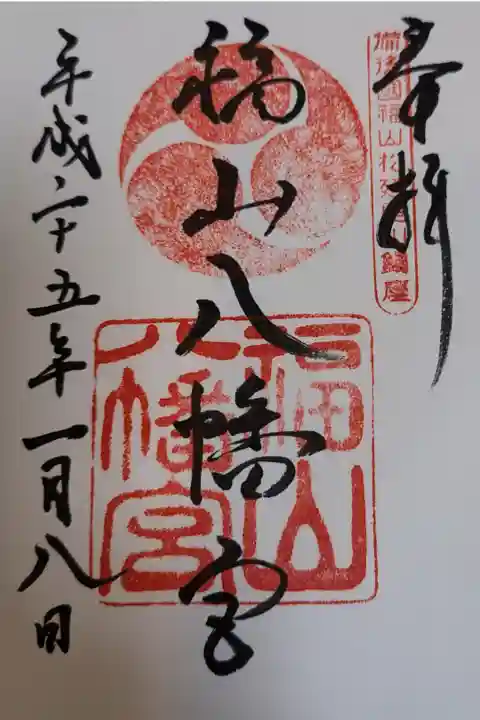 奉拝
備後國福山松山鎮座
福山八幡宮
福山
八幡宮
平成二十五年一月八日